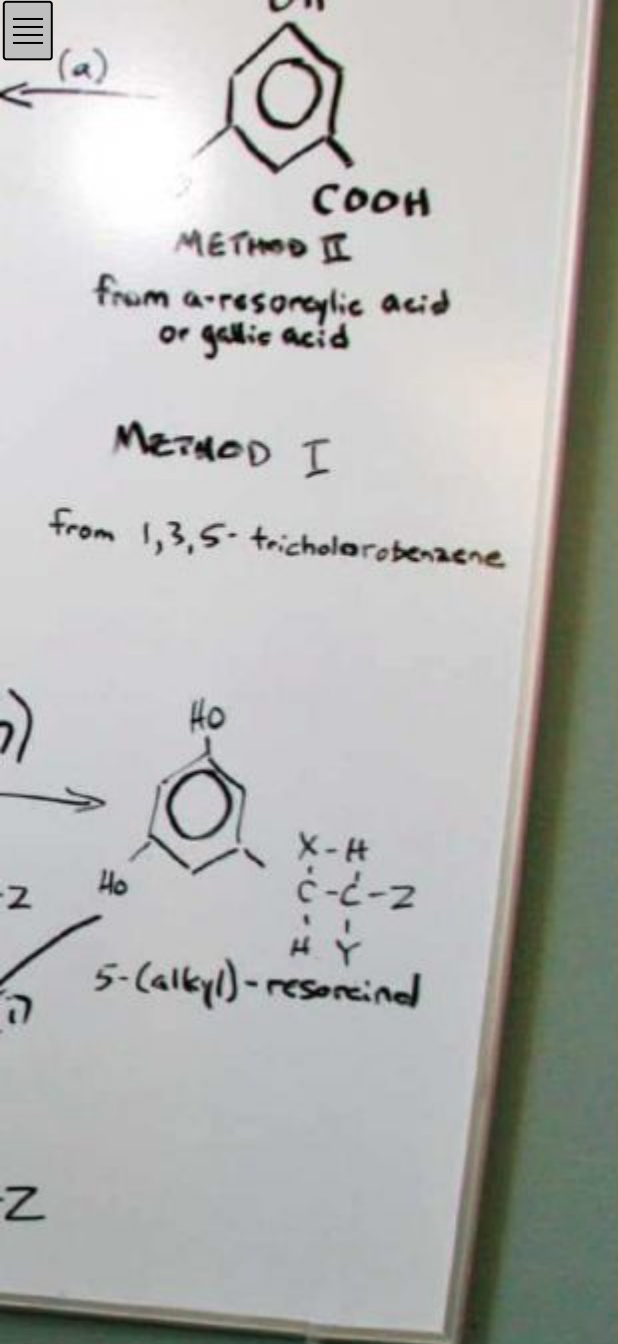 OH
(a)
COOH
METHOD II
from a-resorcylic acid
or gallic acid
METHOD I
from 1,3,5-tricholorobenzene
HO
X-H
HO
C-C-Z
-Z
H Y
5-(alkyl)-resorcinol
-Z